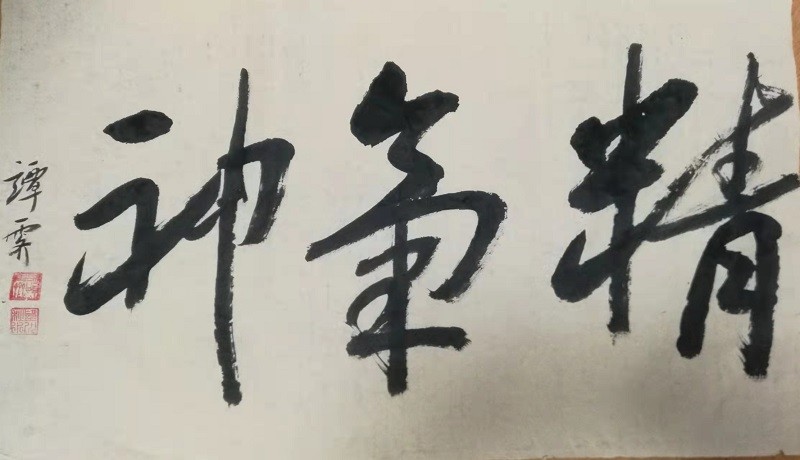 精氣神
譚